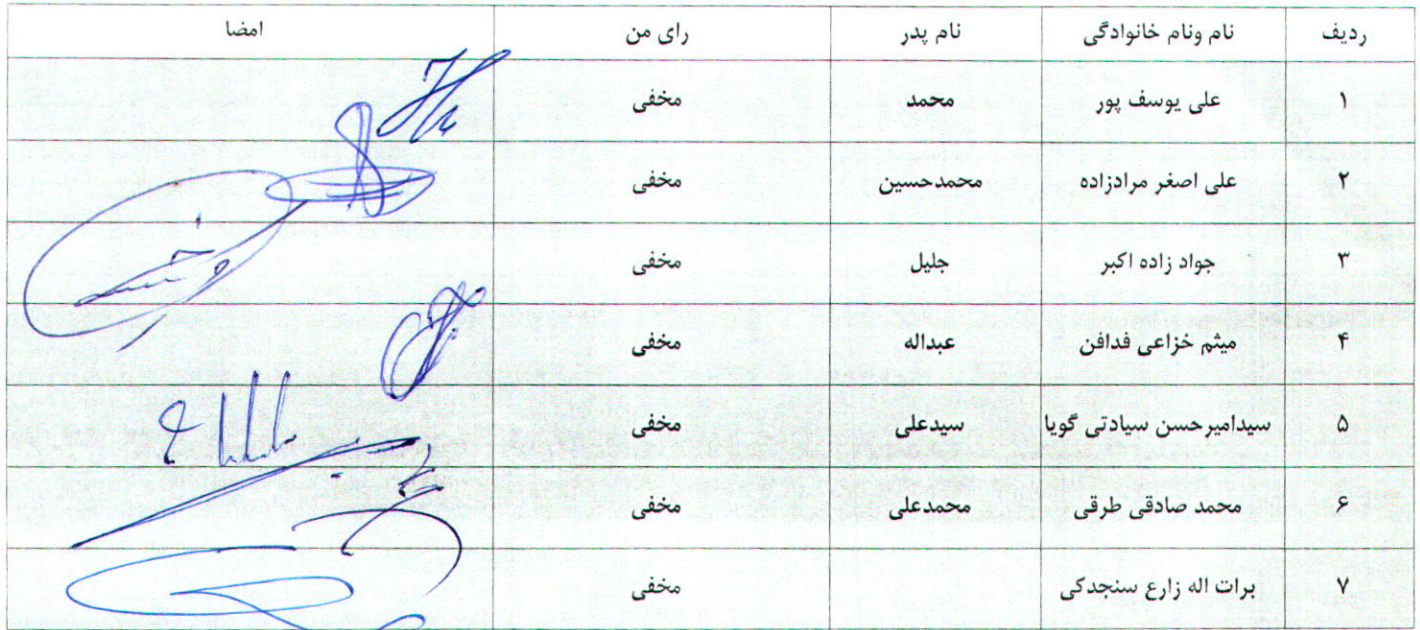 ردیف نام ونام خانوادگی نام پدر رای من امضا
۱ علی یوسف پور محمد مخفی
۲ علی اصغر مرادزاده محمدحسین مخفی
۳ جواد زاده اکبر جلیل مخفی
۴ میثم خزاعی فدافن عبداله مخفی
۵ سیدامیرحسن سیادتی گویا سیدعلی مخفی
۶ محمد صادقی طرقی محمدعلی مخفی
۷ برات اله زارع سنجدکی مخفی